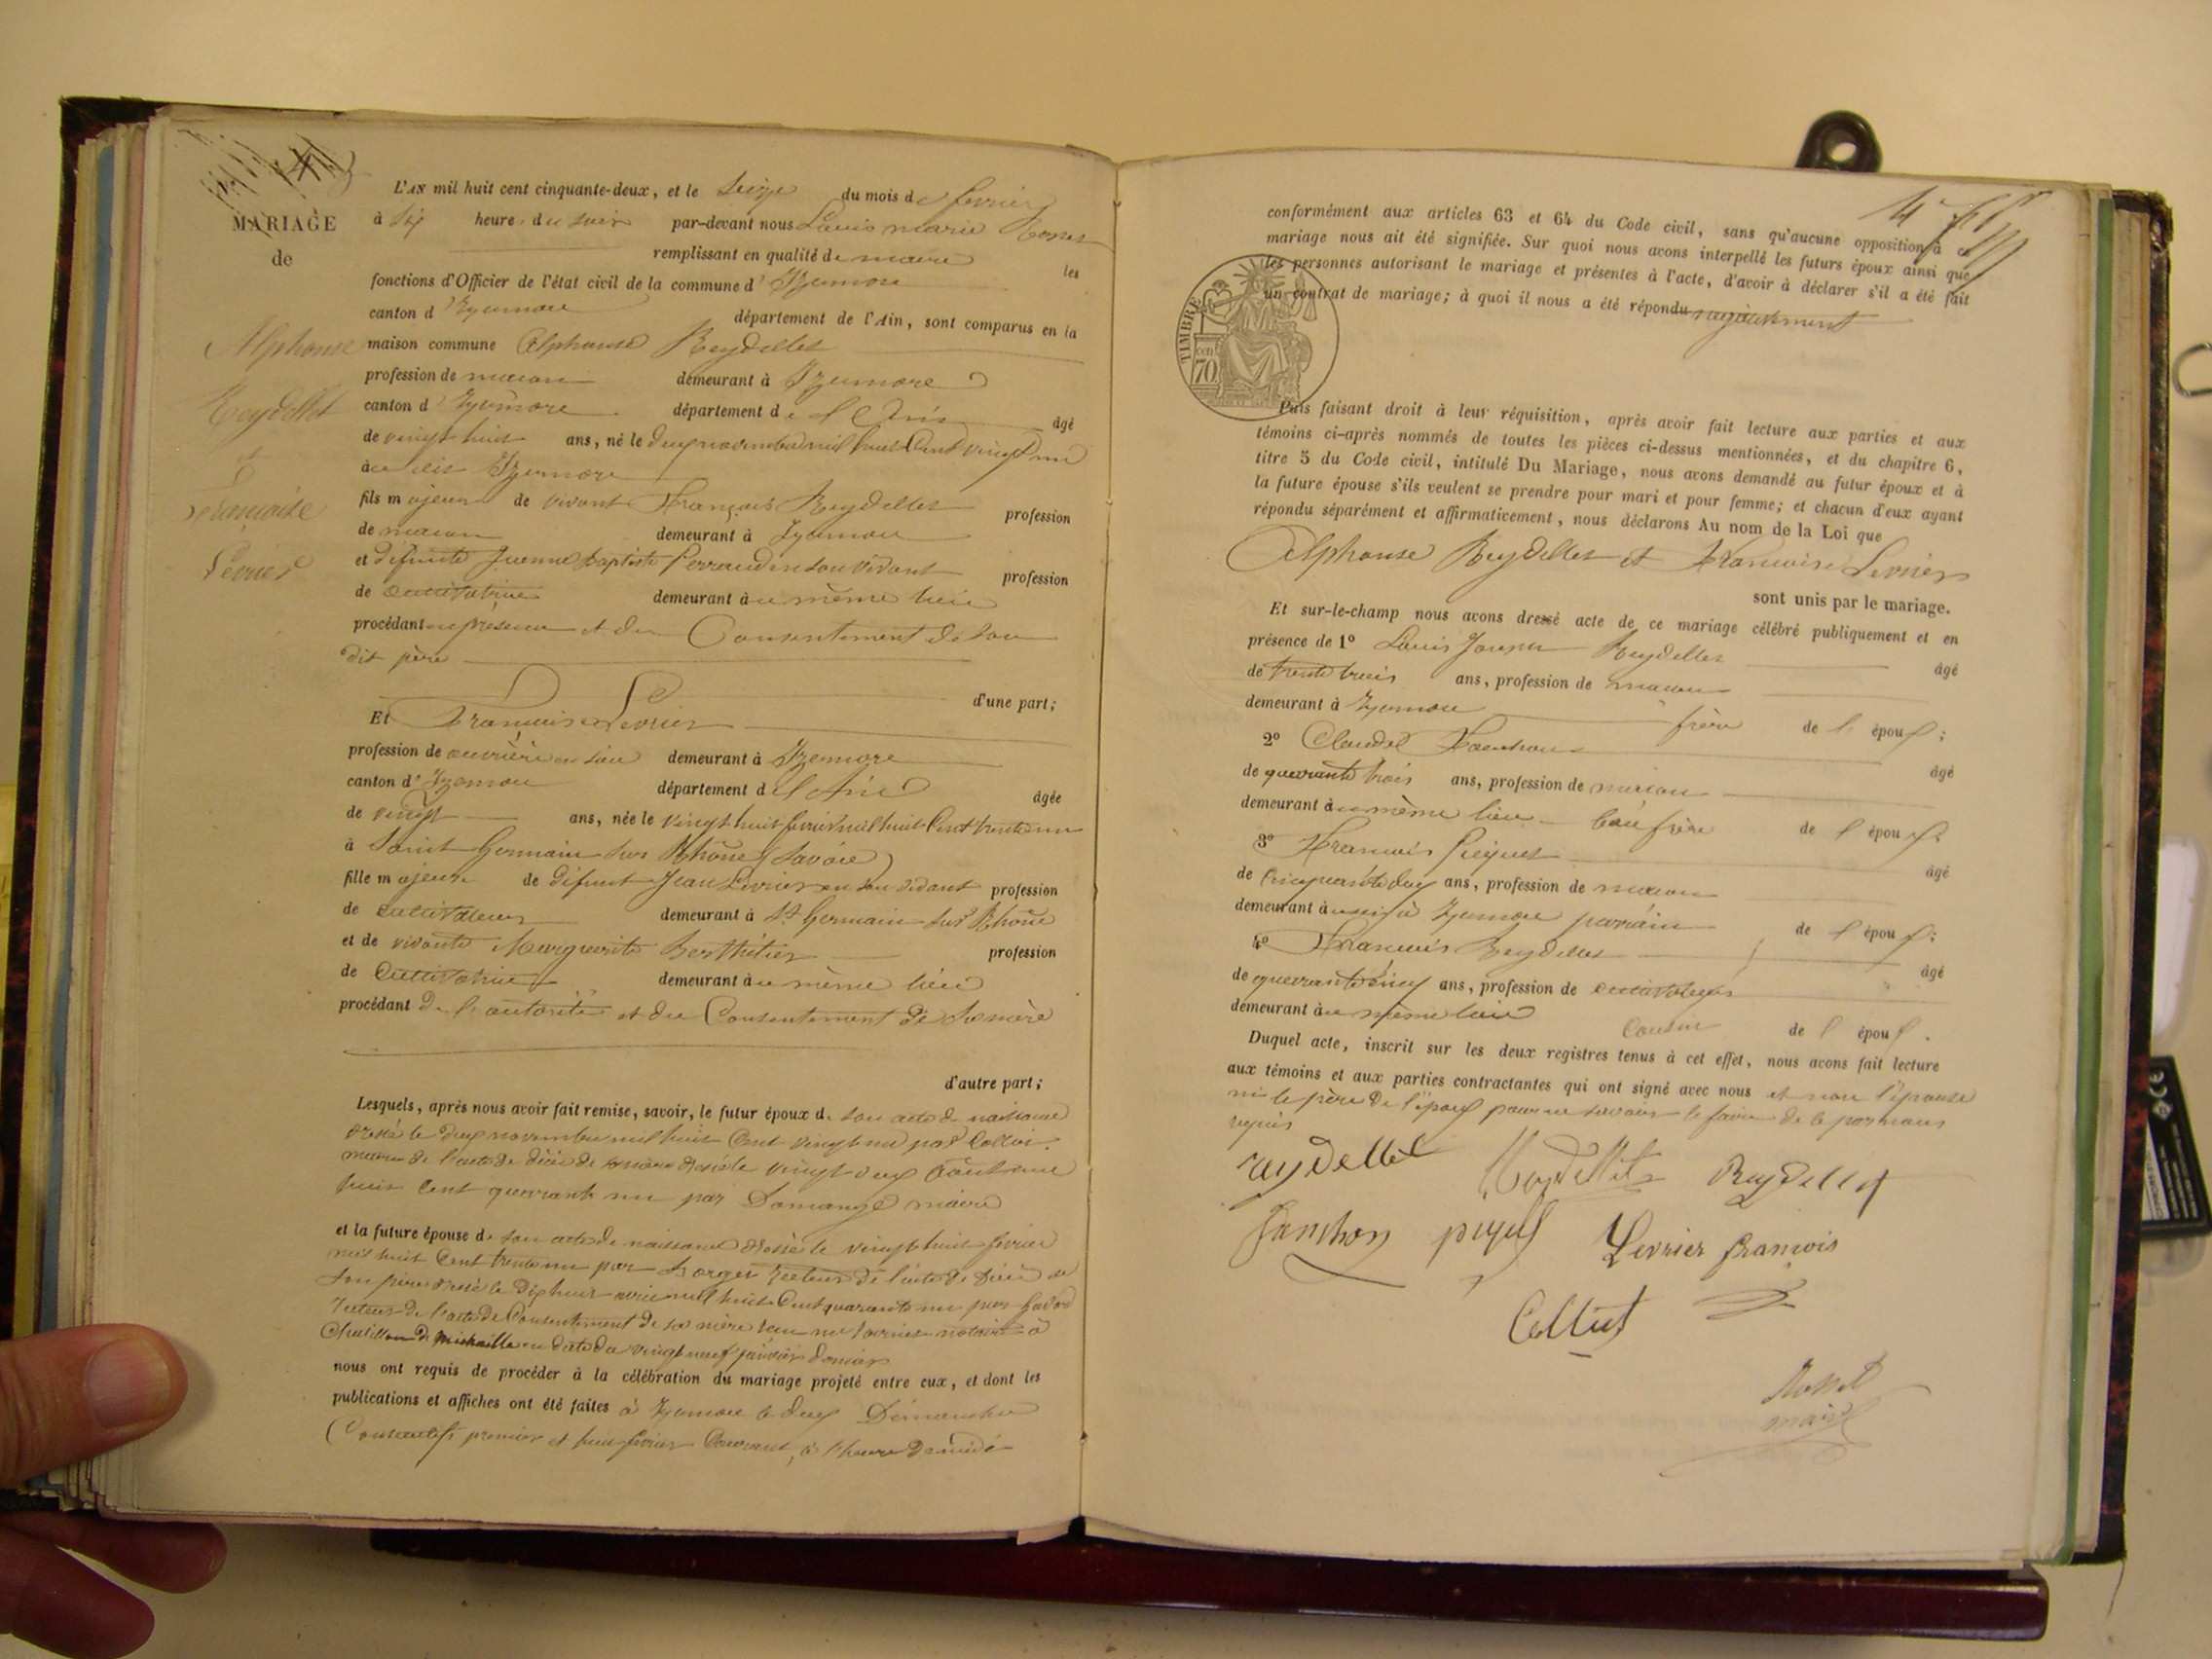 MARIAGE
de
Alphonse
Reydellet
et
Françoise
Levrier
L'AN mil huit cent cinquante-deux, et le seize du mois de février
à six heures du soir par-devant nous Louis marie
remplissant en qualité de maire les
fonctions d'Officier de l'état civil de la commune d'Izernore
canton d'Izernore département de l'Ain, sont comparus en la
maison commune Alphonse Reydellet
profession de maçon demeurant à Izernore
canton d'Izernore département de l'Ain âgé
de vingt huit ans, né le deux novembre mil huit Cent vingt
audit Izernore
fils majeur de vivant François Reydellet profession
de maçon demeurant à Izernore
et défunte Jeanne Baptiste Perraud en son vivant profession
de cultivatrice demeurant au même lieu
procédant en présence et du Consentement de son
dit père
d'une part;
Et Françoise Levrier
profession de ouvrière en soie demeurant à Izernore
canton d'Izernore département de l'Ain âgée
de vingt ans, née le vingt huit février mil huit Cent trente un
à Saint Germain sur Rhône (Savoie)
fille majeure de défunt Jean Levrier en son vivant profession
de cultivateur demeurant à St Germain sur Rhône
et de vivante Marguerite Berthétier profession
de Cultivatrice demeurant au même lieu
procédant de l'autorité et du Consentement de sa mère
d'autre part;
Lesquels, après nous avoir fait remise, savoir, le futur époux de son acte de naissance
dressé le deux novembre mil huit Cent vingt par Collet
maire de l'acte de décès de sa mère dressé le vingt deux août mil
huit Cent quarante un par Domange maire
et la future épouse de son acte de naissance dressé le vingt huit février
mil huit Cent trente un par recteur de l'acte de décès de
son père dressé le dix huit avril mil huit Cent quarante un par
recteur de l'acte de Consentement de sa mère reçu notaire à
Chatillon de Michaille en date du vingt neuf janvier dernier
nous ont requis de procéder à la célébration du mariage projeté entre eux, et dont les
publications et affiches ont été faites à Izernore les deux Dimanches
Consécutifs premier et huit février Courant, à l'heure de midi
conformément aux articles 63 et 64 du Code civil, sans qu'aucune opposition à ce
mariage nous ait été signifiée. Sur quoi nous avons interpellé les futurs époux ainsi que
les personnes autorisant le mariage et présentes à l'acte, d'avoir à déclarer s'il a été fait
un contrat de mariage; à quoi il nous a été répondu négativement
TIMBRE
70
Puis faisant droit à leur réquisition, après avoir fait lecture aux parties et aux
témoins ci-après nommés de toutes les pièces ci-dessus mentionnées, et du chapitre 6,
titre 5 du Code civil, intitulé Du Mariage, nous avons demandé au futur époux et à
la future épouse s'ils veulent se prendre pour mari et pour femme; et chacun d'eux ayant
répondu séparément et affirmativement, nous déclarons Au nom de la Loi que
Alphonse Reydellet et Françoise Levrier
sont unis par le mariage.
Et sur-le-champ nous avons dressé acte de ce mariage célébré publiquement et en
présence de 1º Louis Joseph Reydellet âgé
de trente trois ans, profession de maçon
demeurant à Izernore frère de l'époux;
2º Claude âgé
de quarante trois ans, profession de maçon
demeurant au même lieu beau frère de l'époux;
3º François Piquet âgé
de Cinquante deux ans, profession de maçon
demeurant aussi à Izernore parrain de l'époux;
4º François Reydellet âgé
de quarante cinq ans, profession de cultivateur
demeurant au même lieu Cousin de l'époux.
Duquel acte, inscrit sur les deux registres tenus à cet effet, nous avons fait lecture
aux témoins et aux parties contractantes qui ont signé avec nous et non l'épouse
ni le père de l'époux pour ne savoir le faire de ce par nous
requis
reydellet Reydellet Reydellet
Levrier françois
Collet
maire